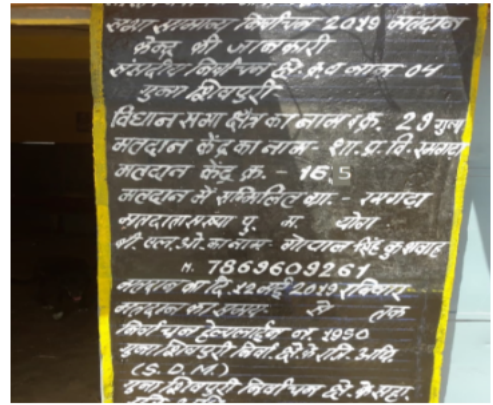 सभा सामान्य निर्वाचन 2019 मतदान
केन्द्र की जानकारी
संसदीय निर्वाचन क्षे. क्र. व नाम 04
गुना शिवपुरी
विधान सभा क्षेत्र का नाम व क्र. 29 गुना
मतदान केंद्र का नाम - शा. प्रा. वि. रमगढा
मतदान केंद्र क्र. - 165
मतदान में सम्मिलित ग्रा. - रमगढा
मतदाता संख्या पु. म. योग
बी. एल. ओ. का नाम - गोपाल सिंह कुशवाह
M. 7869609261
मतदान का दि. 12 मई 2019 रविवार
मतदान का समय- से तक
निर्वाचन हेल्पलाईन न. 1950
गुना शिवपुरी निर्वा. क्षे. के अधि.
(S.D.M.)
गुना शिवपुरी निर्वाचन क्षे. के सहा.